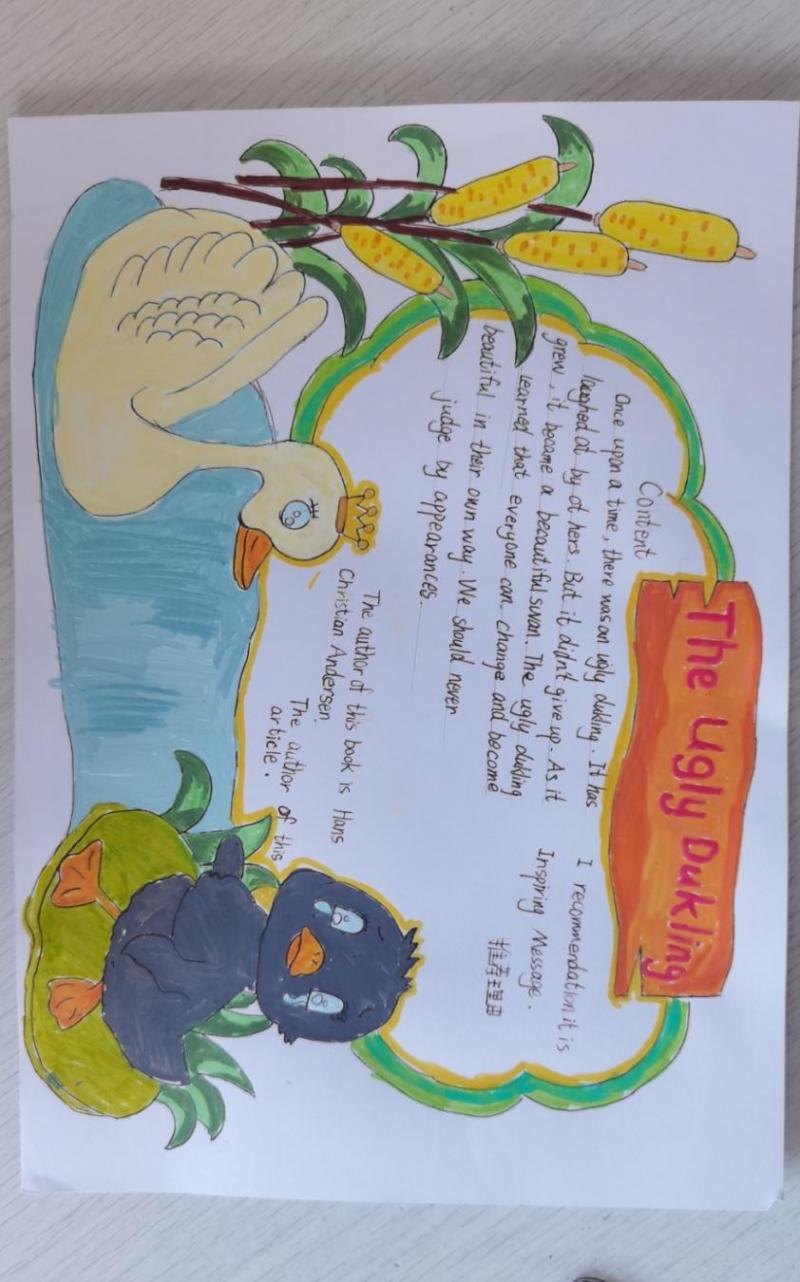 The Ugly Dukling
Content
Once upon a time, there was an ugly dukling. It has
laughed at by others. But it didn't give up. As it
grew, it became a beautiful swan. The ugly dukling
learned that everyone can change and become
beautiful in their own way. We should never
judge by appearances.
I recommendation it is
Inspiring Message.
推荐理由
The author of this book is Hans
Christian Andersen.
The author of this
article.